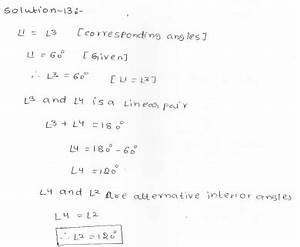 Solution-13:-
∠1 = ∠3 [corresponding angles]
∠1 = 60° [Given]
∴ ∠3 = 60° [∠1 = ∠3]
∠3 and ∠4 is a Linear pair
∠3 + ∠4 = 180°
∠4 = 180° - 60°
∠4 = 120°
∠4 and ∠2 are alternative interior angles
∠4 = ∠2
∴ ∠2 = 120°